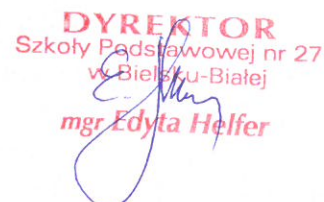 DYREKTOR
Szkoły Podstawowej nr 27
w Bielsku-Białej
mgr Edyta Helfer